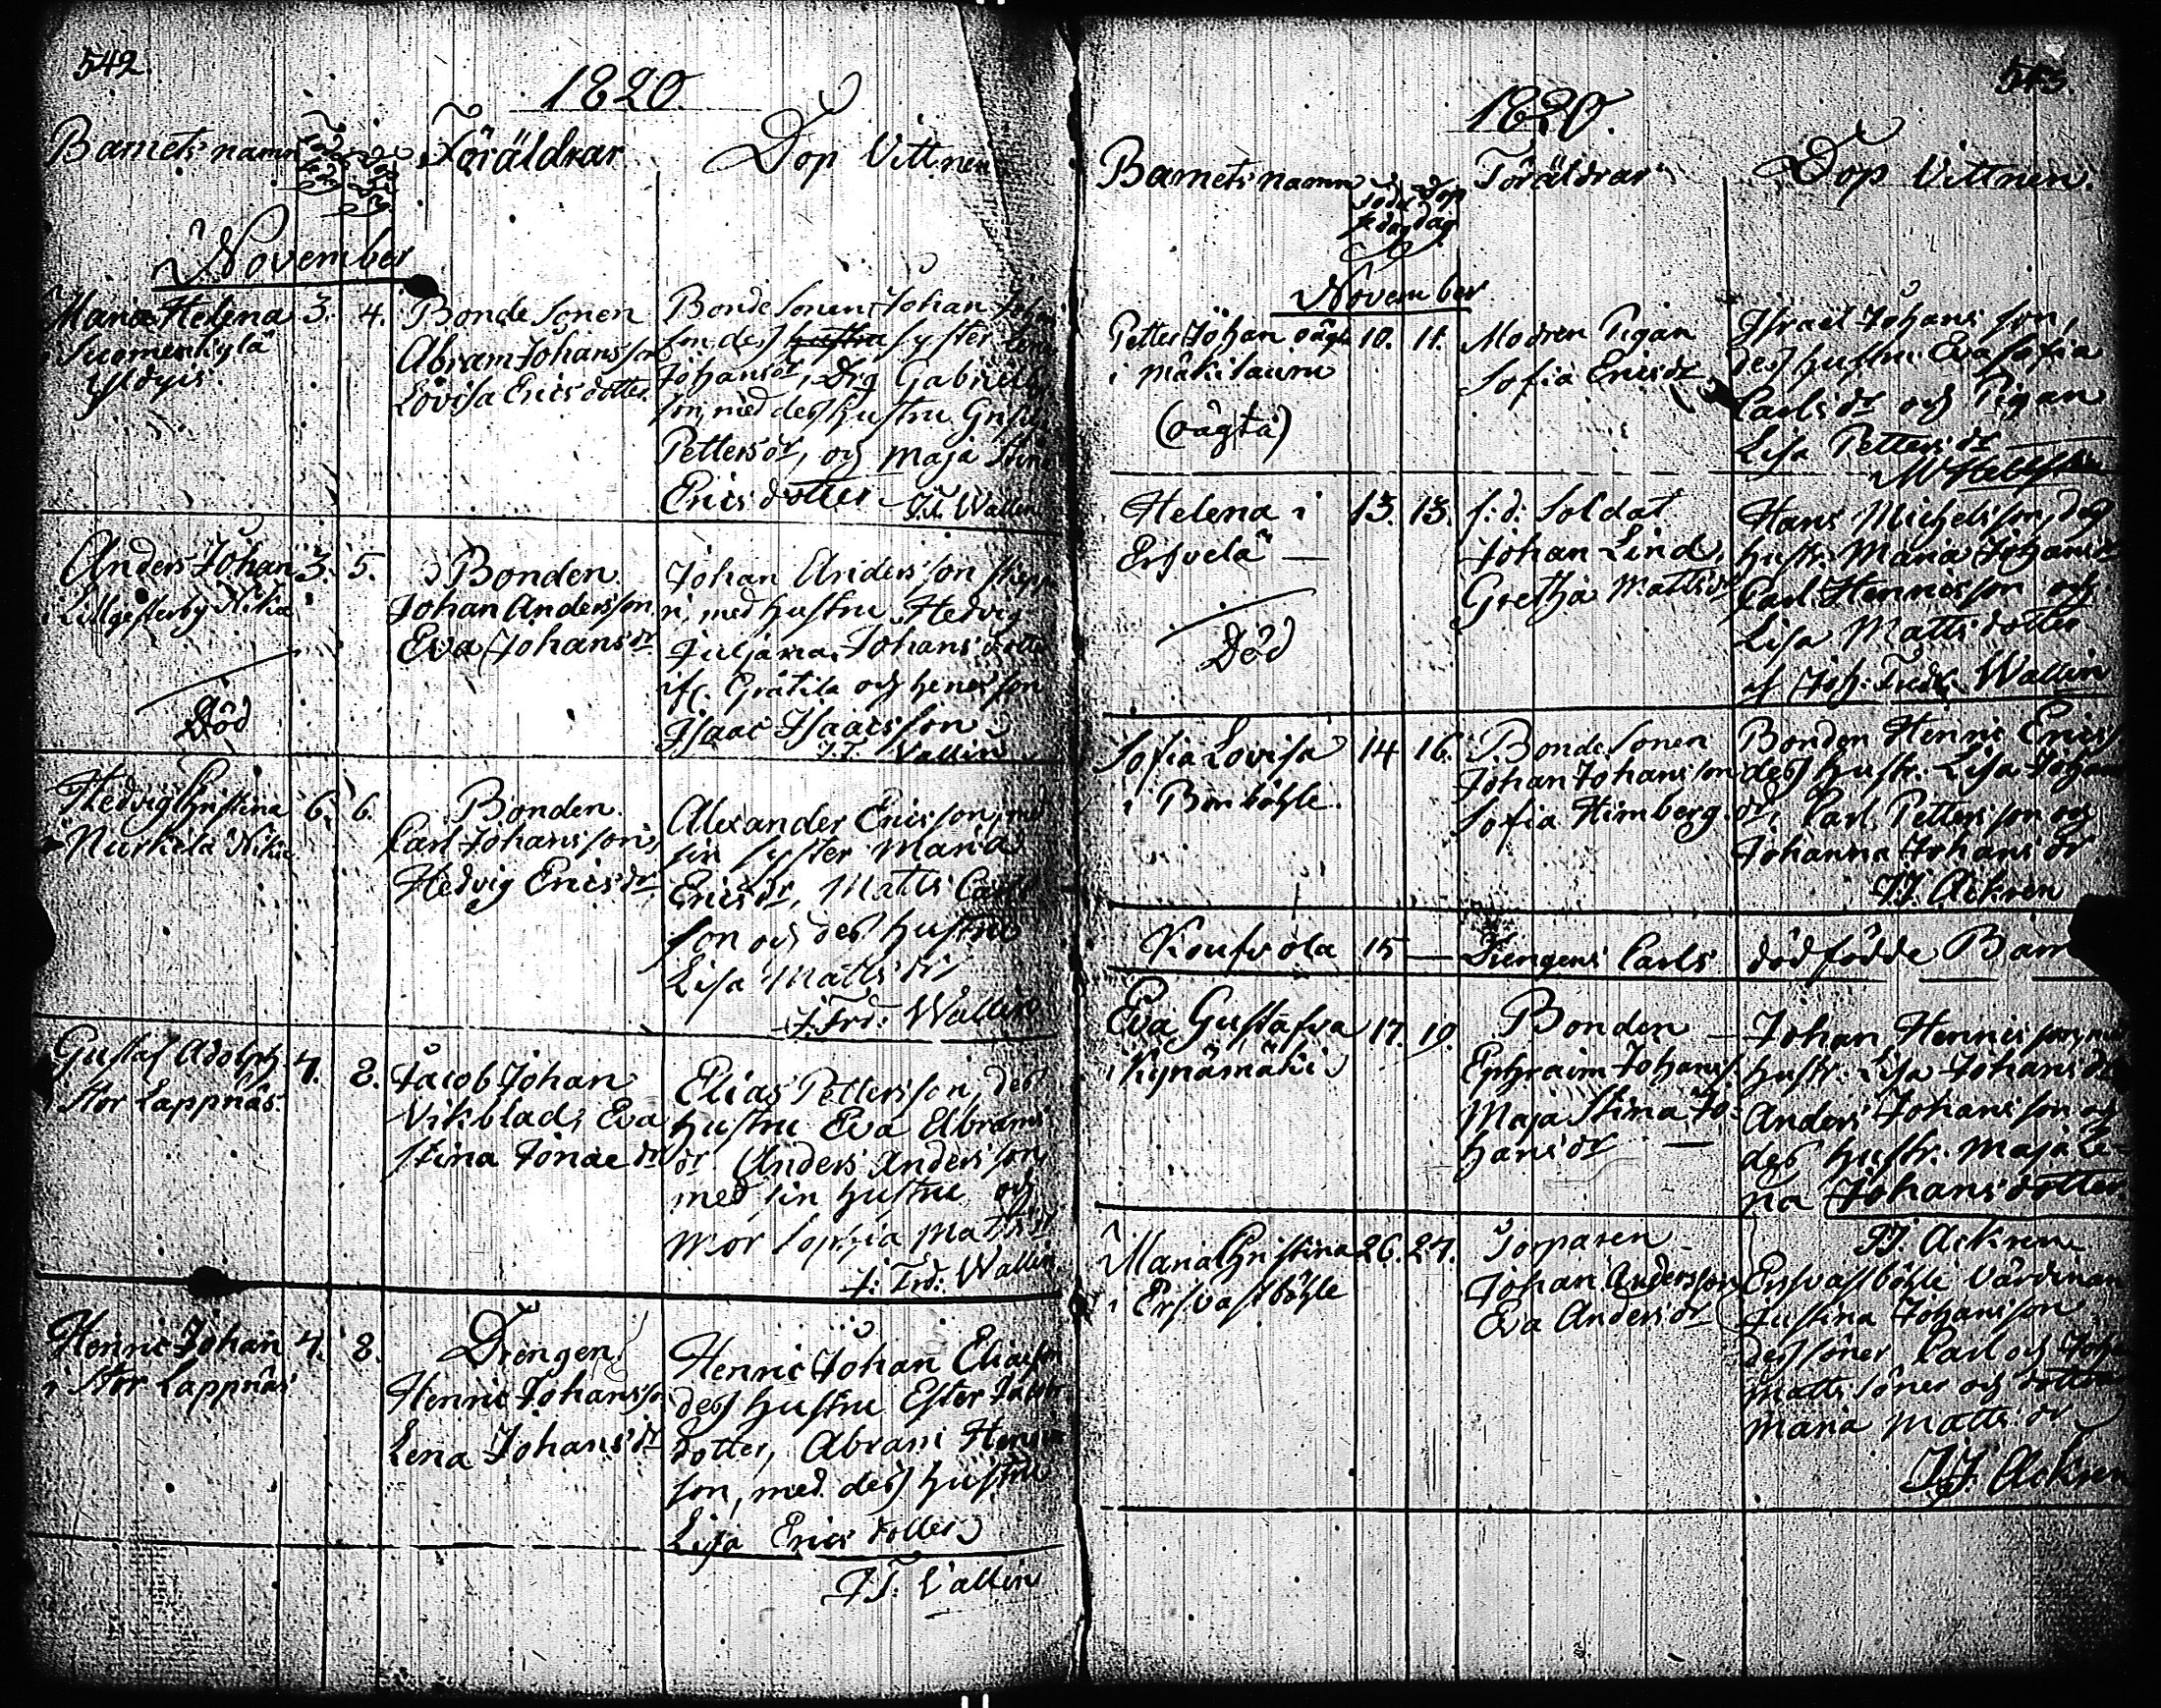 542.
1820
Barnets namn
Föräldrar
Dop Vittnen
November
Maria Helena 3. 4.
Suomenkylä
Bonde Sonen
Abram Johansson
Lovisa Ericsdotter.
Bonde Sonen Johan
son dess hustru syster
Johansdr, Drg Gabriels
son, med dess hustru
Pettersdr, och Maja Stina
Ericsdotter
J. F. Wallin
Anders Johan 3. 5.
i Lillgesterby Nika
Död
Bonden
Johan Andersson
Eva Johansdr
Johan Andersson
med hustru Hedvig
Juljana Johansdotter
och henes son
Isaac Isaacsson
J. F. Wallin
Hedvig Christina 6. 6.
i Nurkila
Bonden
Carl Johansson
Hedvig Ericsdr
Alexander Ericsson, med
sin syster Maria
Ericsdr, Matts Carls
son och dess hustru
Lisa Mattsdr
J. Frd: Wallin
Gustaf Adolph 7. 8.
Stor Lappnäs.
Jacob Johan
Vikblad, Eva
Stina Jonaedr
Elias Pettersson, dess
hustru Eva Abrams
dr Anders Andersson,
med sin hustru och
Mor Sophia Mattsdr
J: Frd: Wallin
Henric Johan 7. 8.
i Stor Lappnäs
Drengen
Henric Johansson
Lena Johansdr
Henric Johan Eliasson
dess hustru Ester Jacobs
dotter, Abram Henric
son, med dess hustru
Lisa Ericsdotter
J F. Wallin
543.
1820.
Barnets namn
Född dag
Dop dag
Föräldrar
Dop Vittnen.
November
Petter Johan oägta 10. 11.
i Mäkilauru
(oägta)
Modren Pigan
Sofia Ericsdr
Israel Johansson,
dess hustru Eva Sofia
Carlsdr och Pigan
Lisa Pettersdr
Helena i 13. 13.
Ersvelä
Död
f: d: Soldat
Johan Lind,
Gretha Mattsdr
Hans Michelsson, dess
hustr. Maria Johansdr
Carl Henricsson och
Lisa Mattsdotter
af Joh: Fredr. Wallin
Sofia Lovisa 14 16.
i Bonböhle.
Bonde Sonen
Johan Johansson
Sofia Himberg.
Bonden Henric Ericss
dess hustr. Lisa Johans
dr, Carl Pettersson och
Johanna Johansdr
J J. Ackren
Koufvola 15 — Drengens Carls dödfödde Barn
Eva Gustafva 17. 19.
i Kynämäki
Bonden
Ephraim Johanss
Maja Stina Jo-
hansdr
Johan Henricsson, med
hustr. Lisa Johansdr
Anders Johansson och
dess hustr. Maja Le-
na Johansdotter
J J. Ackren
Maria Christina 26. 27.
i Ersvastböhle
Torparen
Johan Andersson
Eva Andersdr
Ersvastböhle Värdinan
Justina Johansson
dess söner Carl och Johan
Matts söner och dotter
Maria Mattsdr
J J. Ackren